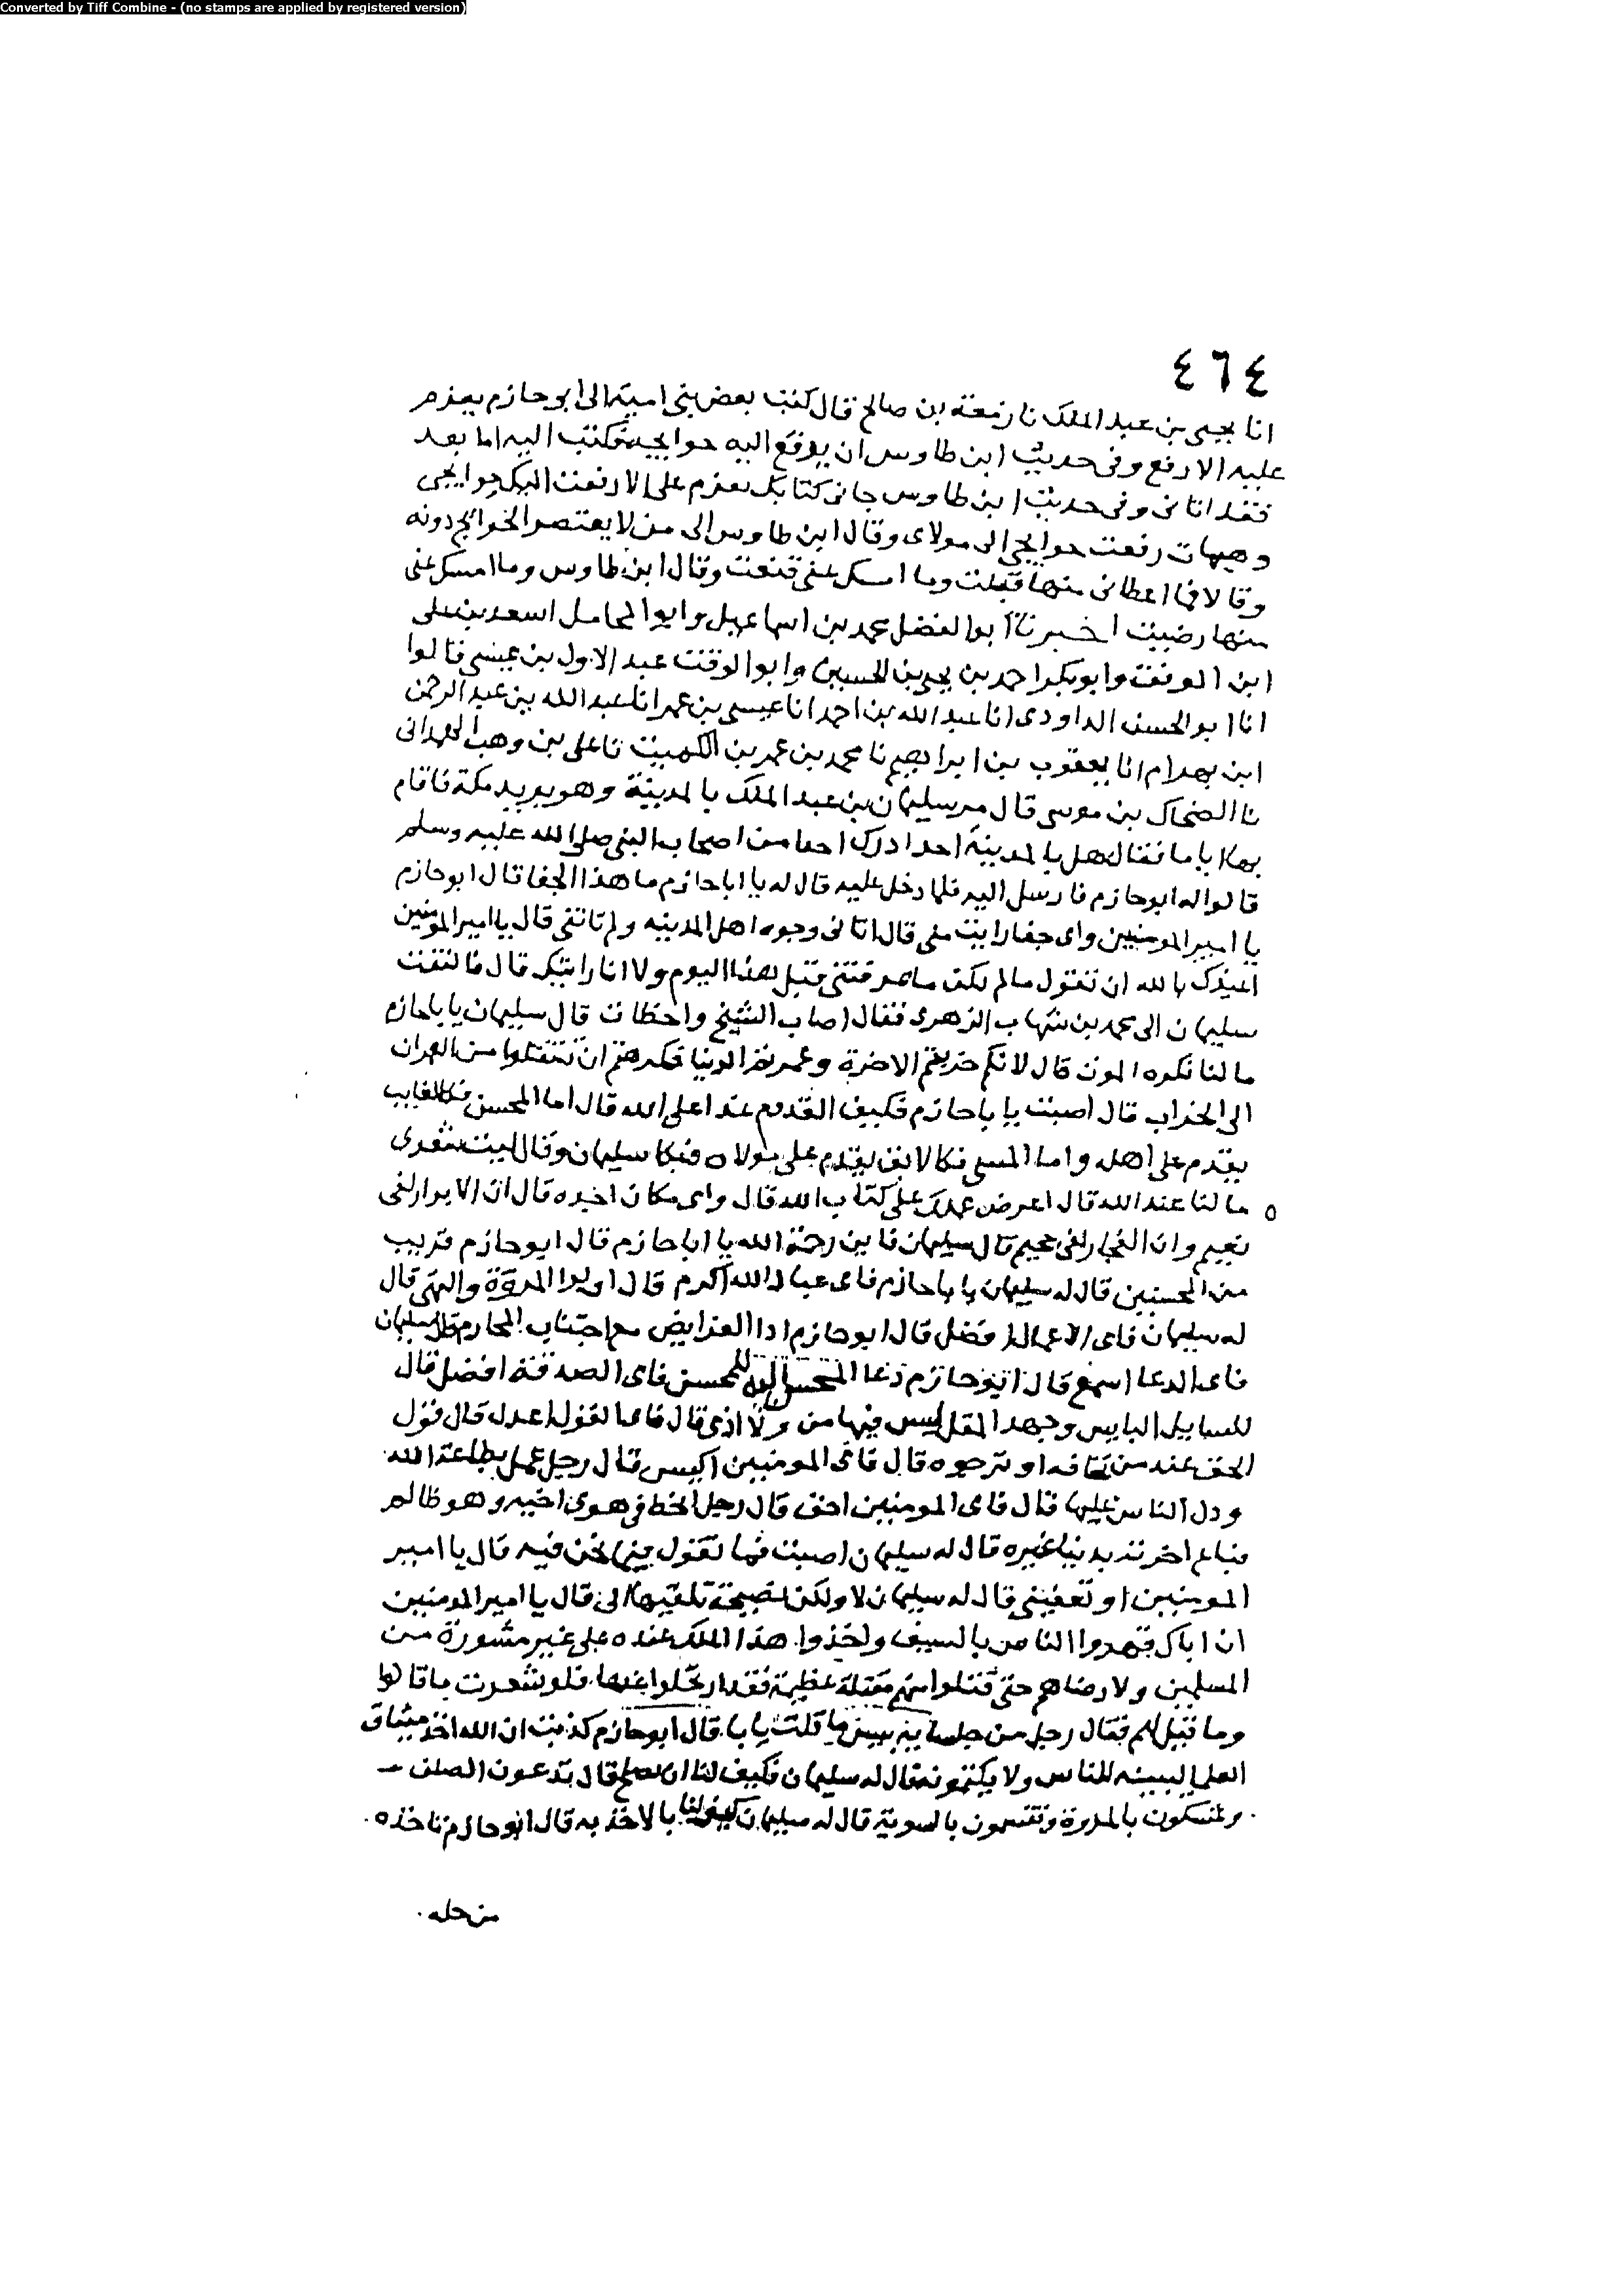 Converted by Tiff Combine - (no stamps are applied by registered version)
٤٦٤
انا يحيى بن عبد الملك نا زمعة بن صالح قال كتب بعض بني امية الى ابو حازم يعزم
عليه الا رفع وفي حديث ابن طاوس ان يرفع اليه حوايجه فكتب اليه اما بعد
فقد اتاني وفي حديث ابن طاوس جاني كتابك تعزم علي الا رفعت اليك حوايجي
وهيهات رفعت حوايجي الى مولاي وقال ابن طاوس الى من لا يعتصر الحوائج دونه
وقالا فما اعطاني منها قبلت وما امسك عني قنعت وقال ابن طاوس وما امسك عني
منها رضيت اخبرنا ابو الفضل محمد بن اسماعيل وابو المحاسن اسعد بن علي
ابن الموفق وابو بكر احمد بن يحيى بن الحسين وابو الوقت عبد الاول بن عيسى قالوا
انا ابو الحسن الداودي انا عبد الله بن احمد انا عيسى بن عمر انا عبد الله بن عبد الرحمن
ابن بهرام انا يعقوب بن ابراهيم نا محمد بن عمر بن الكميت نا علي بن وهب الهمداني
نا الضحاك بن موسى قال مر سليمان بن عبد الملك بالمدينة وهو يريد مكة فاقام
بها اياما فقال هل بالمدينة احد ادرك احدا من اصحاب النبي صلى الله عليه وسلم
قالوا له ابو حازم فارسل اليه فلما دخل عليه قال له يا ابا حازم ما هذا الجفا قال ابو حازم
يا امير المومنين واى جفا رايت مني قال اتاني وجوه اهل المدينه ولم تاتني قال يا امير المومنين
اعيذك بالله ان تقول مالم يكن ما عرفتني قبل هذا اليوم ولا انا رايتك قال فالتفت
سليمان الى محمد بن شهاب الزهري فقال اصاب الشيخ واخطات قال سليمان يا باحازم
ما لنا نكره الموت قال لانكم خربتم الاخرة وعمرتم الدنيا فكرهتم ان تنتقلوا من العمران
الى الخراب قال اصبت يا باحازم فكيف القدوم غدا على الله قال اما المحسن فكالغايب
يقدم على اهله واما المسي فكالابق يقدم على مولاه فبكا سليمان وقال ليت شعري
ما لنا عند الله قال اعرض عملك على كتاب الله قال واى مكان اجده قال ان الابرار لفي
نعيم وان الفجار لفي جحيم قال سليمان فاين رحمة الله يا ابا حازم قال ابو حازم قريب
من المحسنين قال له سليمان يا باحازم فاى عباد الله اكرم قال اولوا المروة والنهى قال
له سليمان فاى الاعمال افضل قال ابو حازم ادا الفرايض مع اجتناب المحارم قال سليمان
فاى الدعا اسمع قال ابو حازم دعا المحسن اليه للمحسن فاى الصدقة افضل قال
للسايل البايس وجهد المقل ليس فيها من ولا اذى قال فاى القول اعدل قال قول
الحق عند من تخافه او ترجوه قال فاى المومنين اكيس قال رجل عمل بطاعة الله
ودل الناس عليها قال فاى المومنين احمق قال رجل انحط في هوى اخيه وهو ظالم
فباع اخرته بدنيا غيره قال له سليمان اصبت فما تقول فيما نحن فيه قال يا امير
المومنين او تعفيني قال له سليمان لا ولكن نصيحة تلقيها الي قال يا امير المومنين
ان اباك قهروا الناس بالسيف واخذوا هذا الملك عنده على غير مشورة من
المسلمين ولا رضاهم حتى قتلوا منهم مقتلة عظيمة فقد ارتحلوا عنها فلو شعرت ما قالوا
وما قيل لهم فقال رجل من جلسايه بيس ما قلت يا با قال ابو حازم كذبت ان الله اخذ ميثاق
العلما ليبيننه للناس ولا يكتمونه قال له سليمان فكيف لنا ان نصلح قال تدعون الصلف
وتمسكون بالمروة وتقسمون بالسوية قال له سليمان كيف لنا بالاخذ به قال ابو حازم تاخذه
من حله